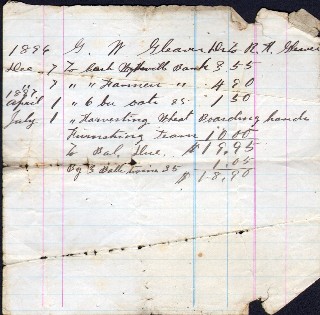 1896 G. W Gleaves Dr to R. A. Gleaves
Dec 7 To Cash Wytheville Bank 3 55
" 7 " " Farmers " 4 80
1897
April 1 " 6 bu oats 25 1 50
July 1 " Harvesting Wheat Boarding hands
Furnishing team 10.00
To Bal. Due. $19.95
By 3 25 1.05
$18.90